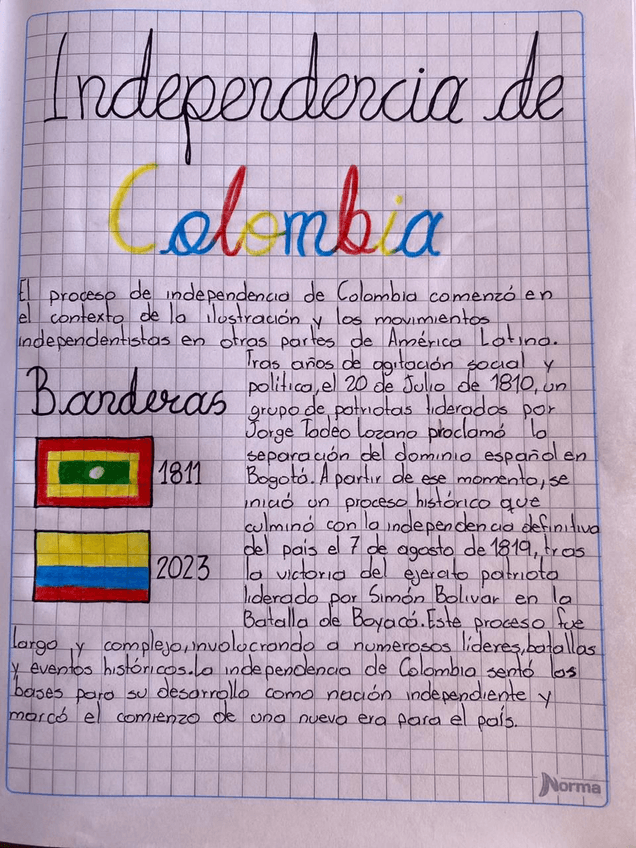 Independencia de
Colombia
El proceso de independencia de Colombia comenzó en
el contexto de la ilustración y los movimientos
independentistas en otras partes de América Latina.
Tras años de agitación social y
política, el 20 de Julio de 1810, un
grupo de patriotas liderados por
Jorge Tadeo Lozano proclamó la
separación del dominio español en
Bogotá. A partir de ese momento, se
inició un proceso histórico que
culminó con la independencia definitiva
del país el 7 de agosto de 1819, tras
la victoria del ejercito patriota
liderado por Simón Bolivar en la
Batalla de Boyacá. Este proceso fue
largo y complejo, involucrando a numerosos líderes, batallas
y eventos históricos. La independencia de Colombia sentó las
bases para su desarrollo como nación independiente y
marcó el comienzo de una nueva era para el país.
Banderas
1811
2023
Norma